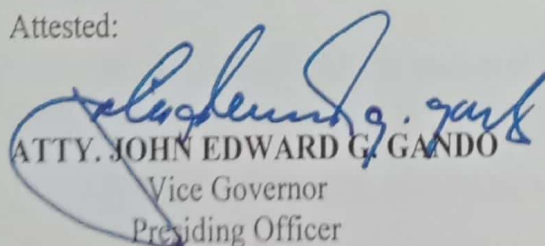 Attested:
ATTY. JOHN EDWARD G. GANDO
Vice Governor
Presiding Officer